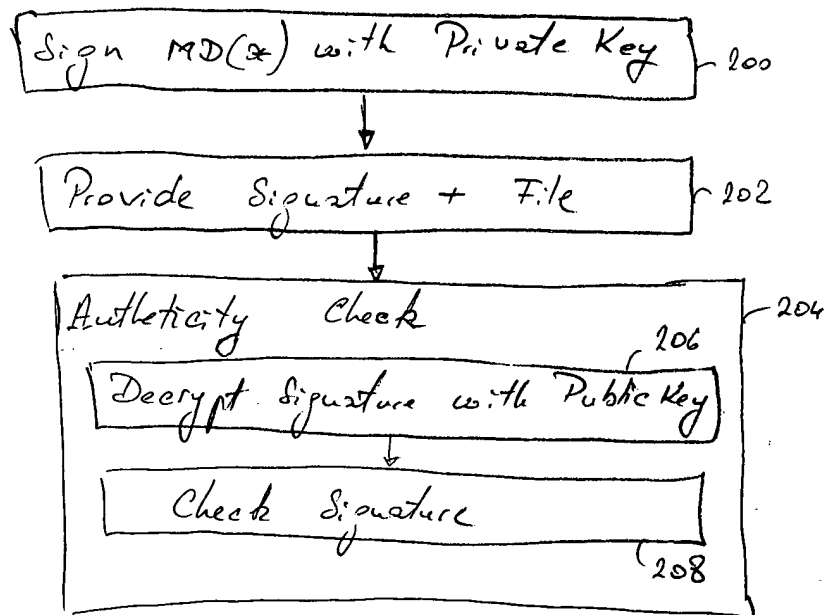 Sign MD(x) with Private Key 200
Provide Signature + File 202
Autheticity Check 204
206
Decrypt Signature with Public Key
Check Signature
208